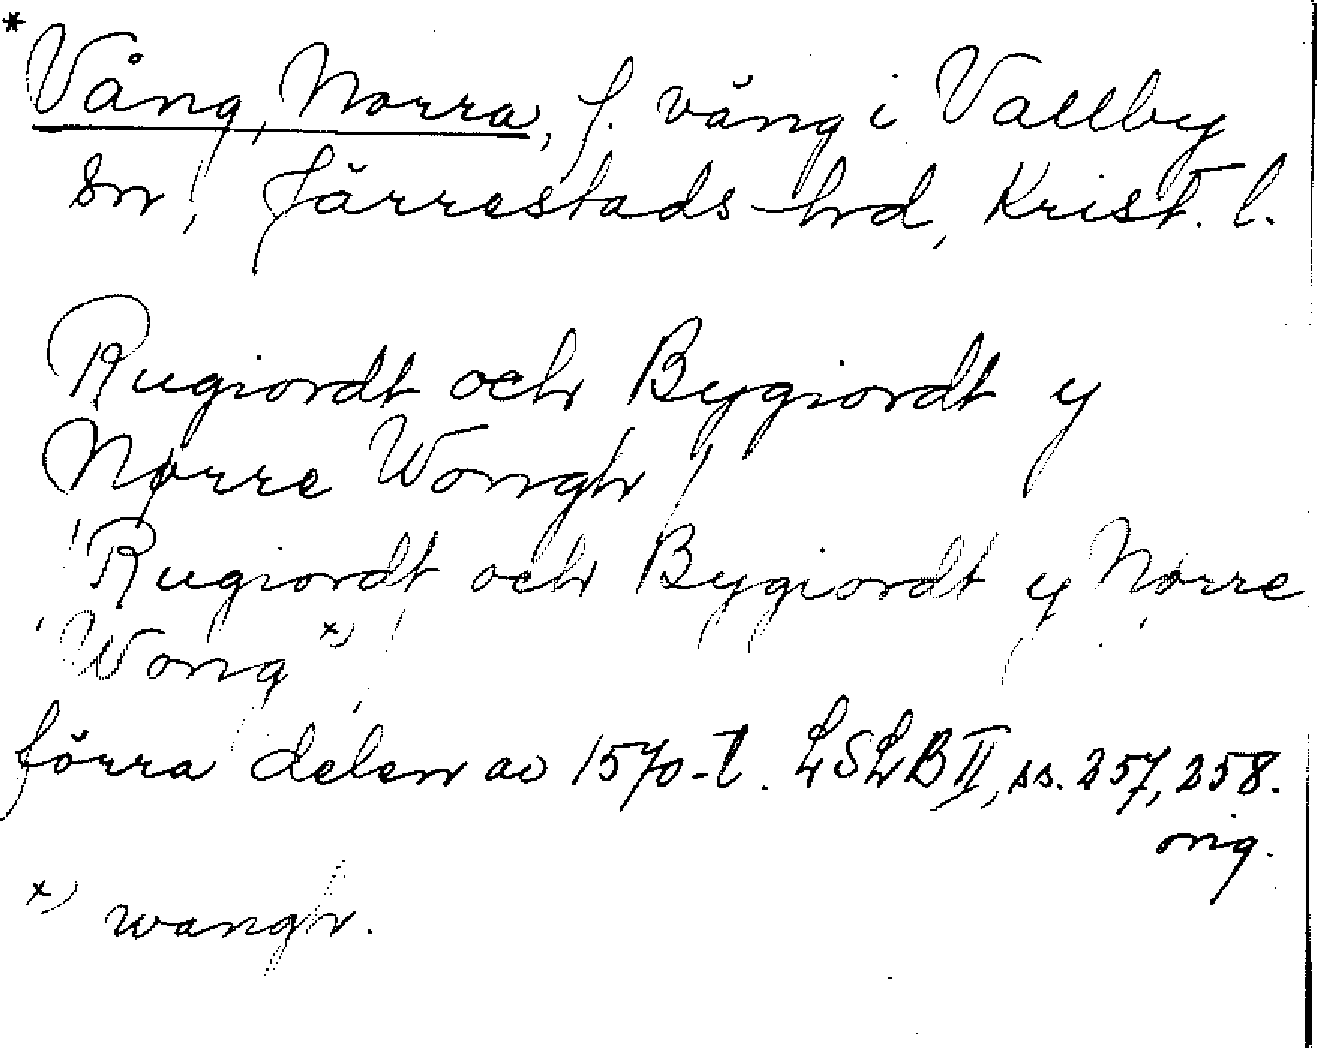 *Vång, Norra, f. vång i Vallby
sn, Järrestads hrd, Krist. l.
Rugiordt och Bygiordt y
Nørre Wongh /
Rugiordt och Bygiordt y Nørre
Wong x)
förra delen av 1570-t. LSLB II, ss. 257, 258.
orig.
x) wangh.